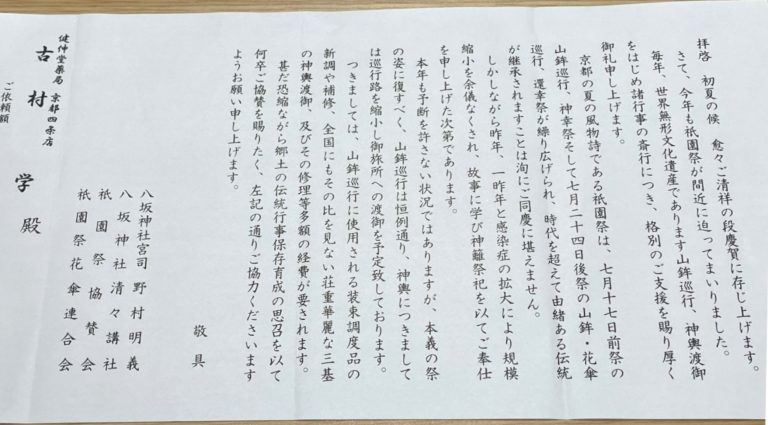 拝啓 初夏の候 愈々ご清祥の段慶賀に存じ上げます。
さて、今年も祇園祭が間近に迫ってまいりました。
毎年、世界無形文化遺産であります山鉾巡行、神輿渡御
をはじめ諸行事の斎行につき、格別のご支援を賜り厚く
御礼申し上げます。
京都の夏の風物詩である祇園祭は、七月十七日前祭の
山鉾巡行、神幸祭そして七月二十四日後祭の山鉾・花傘
巡行、還幸祭が繰り広げられ、時代を超えて由緒ある伝統
が継承されますことは洵にご同慶に堪えません。
しかしながら昨年、一昨年と感染症の拡大により規模
縮小を余儀なくされ、故事に学び神籬祭祀を以てご奉仕
を申し上げた次第であります。
本年も予断を許さない状況ではありますが、本義の祭
の姿に復すべく、山鉾巡行は恒例通り、神輿につきまして
は巡行路を縮小し御旅所への渡御を予定致しております。
つきましては、山鉾巡行に使用される装束調度品の
新調や補修、全国にもその比を見ない荘重華麗な三基
の神輿渡御、及びその修理等多額の経費が要されます。
甚だ恐縮ながら郷土の伝統行事保存育成の思召を以て
何卒ご協賛を賜りたく、左記の通りご協力くださいます
ようお願い申し上げます。
敬具
八坂神社宮司 野村明義
八坂神社清々講社
祇園祭協賛会
祇園祭花傘連合会
健伸堂薬局 京都四条店
古村 学 殿
ご依頼額